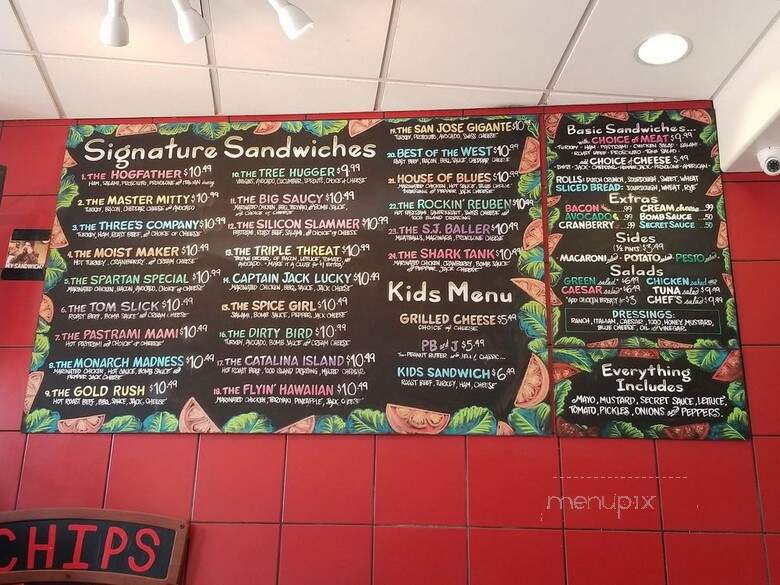 Signature Sandwiches
1. THE HOGFATHER $10.49
HAM, SALAMI, PROSCIUTTO, PROVOLONE
2. THE MASTER MITTY $10.49
TURKEY, BACON, CHEDDAR CHEESE AND AVOCADO
3. THE THREE'S COMPANY $10.99
TURKEY, HAM, ROAST BEEF, AND CHOICE OF CHEESE
4. THE MOIST MAKER $10.49
HOT TURKEY, CRANBERRY, AND CREAM CHEESE
5. THE SPARTAN SPECIAL $10.99
MARINATED CHICKEN, BACON, AVOCADO, CHOICE OF CHEESE
6. THE TOM SLICK $10.49
ROAST BEEF, BOMB SAUCE AND CHEESE
7. THE PASTRAMI MAMI $10.49
HOT PASTRAMI AND CHOICE OF CHEESE
8. THE MONARCH MADNESS $10.49
MARINATED CHICKEN, HOT SAUCE, BOMB SAUCE AND
PEPPER JACK CHEESE
9. THE GOLD RUSH $10.49
HOT ROAST BEEF, BBQ SAUCE, JACK CHEESE
10. THE TREE HUGGER $9.99
AVOCADO, CUCUMBER, SPROUTS, CHOICE OF CHEESE
11. THE BIG SAUCY $10.49
12. THE SILICON SLAMMER $10.49
PASTRAMI, ROAST BEEF, SALAMI AND CHOICE OF CHEESE
13. THE TRIPLE THREAT $10.99
14. CAPTAIN JACK LUCKY $10.49
15. THE SPICE GIRL $10.49
SALAMI, BOMB SAUCE, PEPPERS, JACK CHEESE
16. THE DIRTY BIRD $10.49
TURKEY, AVOCADO, BOMB SAUCE AND CREAM CHEESE
17. THE CATALINA ISLAND $10.49
HOT ROAST BEEF, 1000 ISLAND DRESSING, MELTED CHEDDAR
18. THE FLYIN' HAWAIIAN $10.49
MARINATED CHICKEN, TERIYAKI, PINEAPPLE, JACK CHEESE
19. THE SAN JOSE GIGANTE $10.99
TURKEY, PROSCIUTTO, AVOCADO, SWISS CHEESE
20. BEST OF THE WEST $10.99
ROAST BEEF, BACON, BBQ, SAUCE, CHEDDAR CHEESE
21. HOUSE OF BLUES $10.49
22. THE ROCKIN' REUBEN $10.99
HOT PASTRAMI, SAUERKRAUT, SWISS CHEESE AND
1000 ISLAND DRESSING
23. THE S.J. BALLER $10.49
MEATBALLS, MARINARA, PROVOLONE CHEESE
24. THE SHARK TANK $10.49
MARINATED CHICKEN, CRANBERRY, BOMB SAUCE
AND PEPPER JACK CHEESE
Kids Menu
GRILLED CHEESE $5.49
CHOICE OF CHEESE
PB AND J $5.49
KIDS SANDWICH $6.99
ROAST BEEF, TURKEY, HAM, CHEESE
Basic Sandwiches...
with CHOICE OF MEAT $9.99
TURKEY - HAM - PASTRAMI - CHICKEN SALAD - SALAMI
ROAST BEEF - PROSCIUTTO - TUNA SALAD
add CHOICE OF CHEESE
SWISS - JACK - CHEDDAR - PEPPER JACK - PROVOLONE - AMERICAN
ROLLS: DUTCH CRUNCH, SOURDOUGH, SWEET, WHEAT
SLICED BREAD: SOURDOUGH, WHEAT, RYE
Extras
BACON .99 CREAM cheese .99
AVOCADO .99 BOMB SAUCE .50
CRANBERRY .99 SECRET SAUCE .50
Sides
1/2 PINT $3.99
MACARONI salad - POTATO salad - PESTO
Salads
GREEN salad $6.49 CHICKEN salad
CAESAR salad $6.49 TUNA salad $9.99
"ADD CHICKEN BREAST" for $3 CHEF'S salad $9.99
DRESSINGS:
RANCH, ITALIAN, CAESAR, 1000, HONEY MUSTARD,
BLUE CHEESE, OIL AND VINEGAR
Everything
Includes
MAYO, MUSTARD, SECRET SAUCE, LETTUCE,
TOMATO, PICKLES, ONIONS AND PEPPERS.
MY SANDWICH
CHIPS
menupix